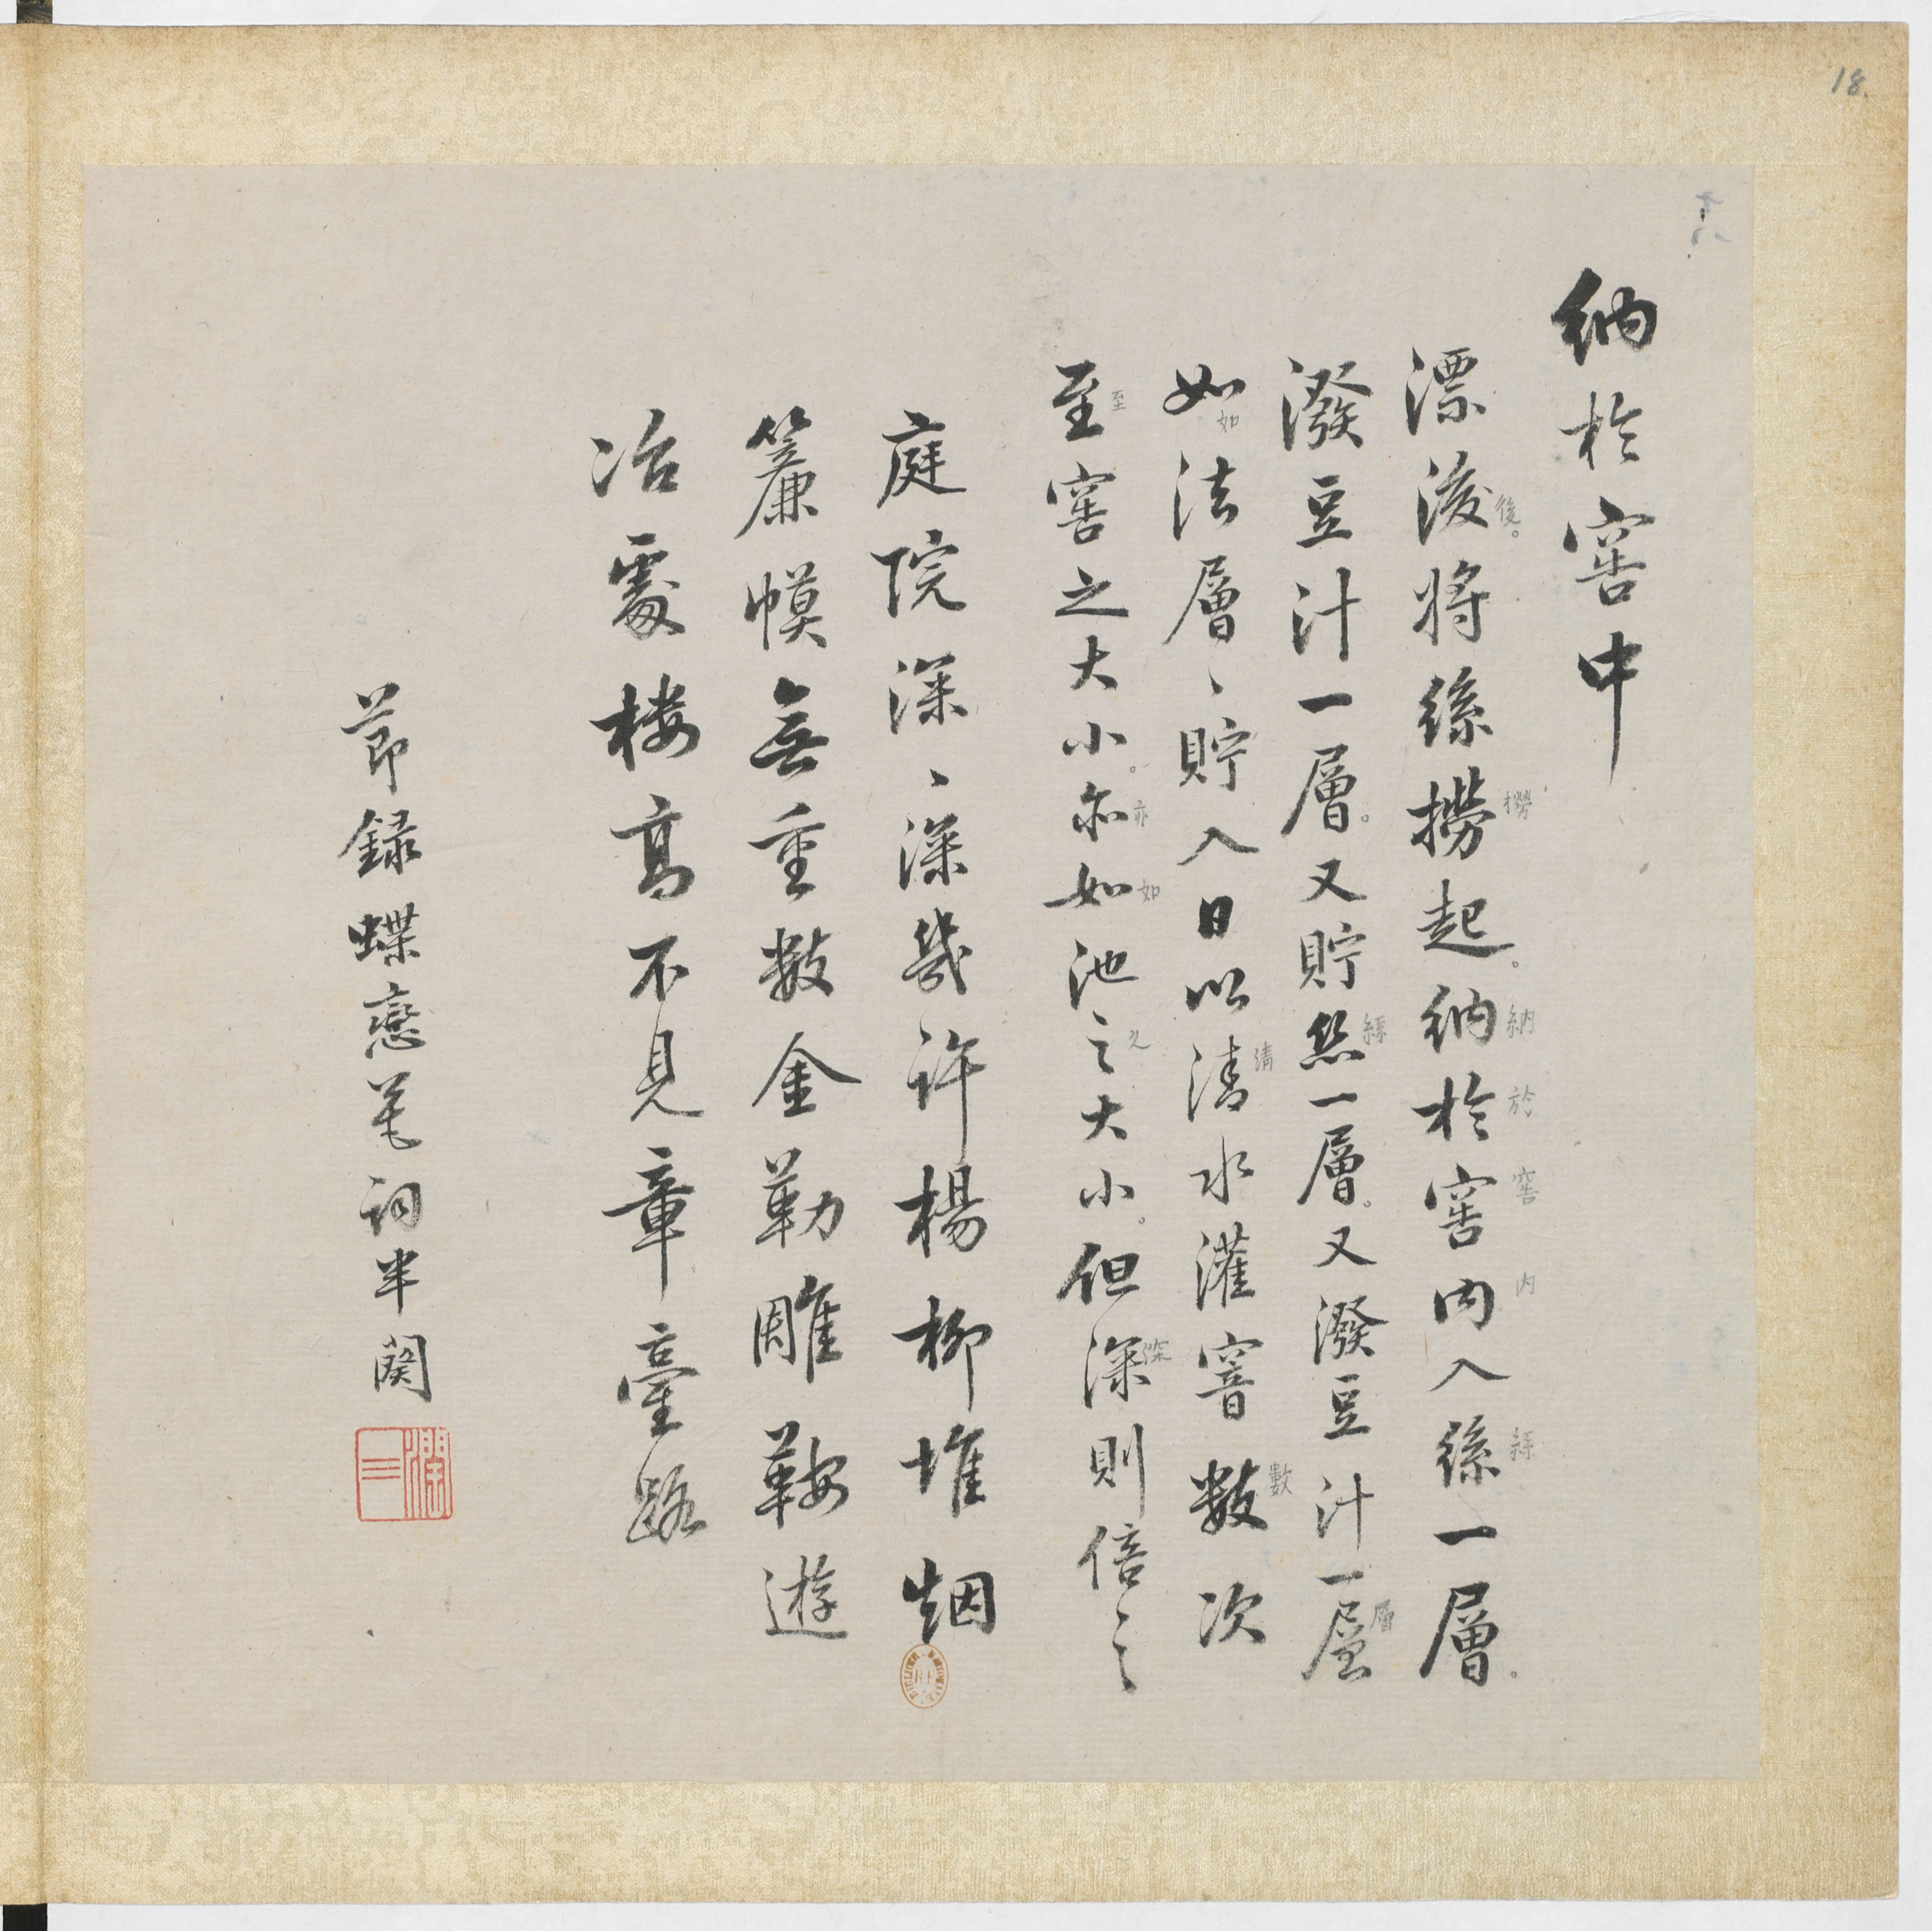 18.
十六
納於窖中
漂後將絲撈起。納於窖內入絲一層。
潑豆汁一層。又貯絲一層。又潑豆汁一層
如法層、貯入日以清水灌窖數次
至窖之大小。亦如池之大小。但深則倍之
庭院深、深幾許楊柳堆烟
簾幙無重數金勒雕鞍遊
冶處楼高不見章臺路
節録蝶戀花詞半闋